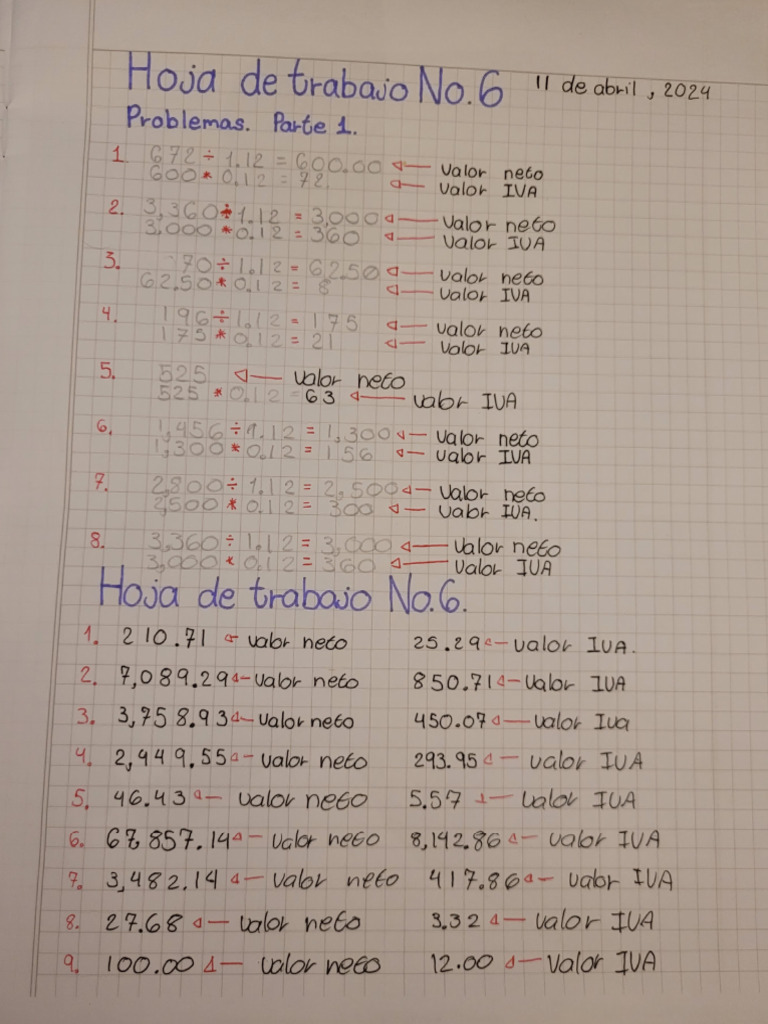 Hoja de trabajo No.6 11 de abril, 2024
Problemas. Parte 1.
1. 672 ÷ 1.12 = 600.00 ← valor neto
600 * 0.12 = 72 ← valor IVA
2. 3,360 ÷ 1.12 = 3,000 ← valor neto
3,000 * 0.12 = 360 ← valor IVA
3. 70 ÷ 1.12 = 62.50 ← valor neto
62.50 * 0.12 = 8 ← valor IVA
4. 196 ÷ 1.12 = 175 ← valor neto
175 * 0.12 = 21 ← valor IVA
5. 525 ← valor neto
525 * 0.12 = 63 ← valor IVA
6. 1,456 ÷ 1.12 = 1,300 ← valor neto
1,300 * 0.12 = 156 ← valor IVA
7. 2,800 ÷ 1.12 = 2,500 ← valor neto
2,500 * 0.12 = 300 ← valor IVA.
8. 3,360 ÷ 1.12 = 3,000 ← valor neto
3,000 * 0.12 = 360 ← valor IVA
Hoja de trabajo No.6.
1. 210.71 ← valor neto 25.29 ← valor IVA.
2. 7,089.29 ← valor neto 850.71 ← valor IVA
3. 3,758.93 ← valor neto 450.07 ← valor Iva
4. 2,449.55 ← valor neto 293.95 ← valor IVA
5. 46.43 ← valor neto 5.57 ← valor IVA
6. 67,857.14 ← valor neto 8,142.86 ← valor IVA
7. 3,482.14 ← valor neto 417.86 ← valor IVA
8. 27.68 ← valor neto 3.32 ← valor IVA
9. 100.00 ← valor neto 12.00 ← valor IVA